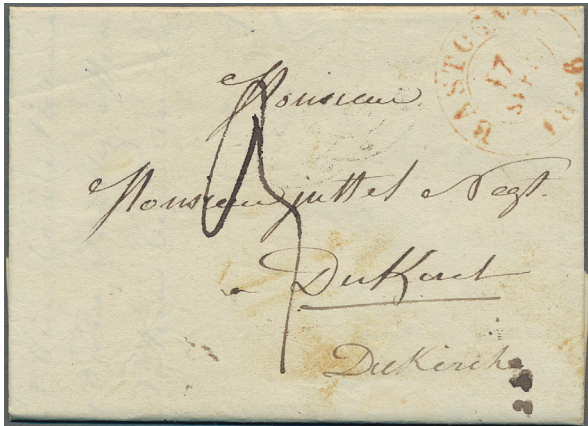 BASTOGNE
17
SEPT
1836
Monsieur
Monsieur juttel Negt.
a DieKiret
Diekirch